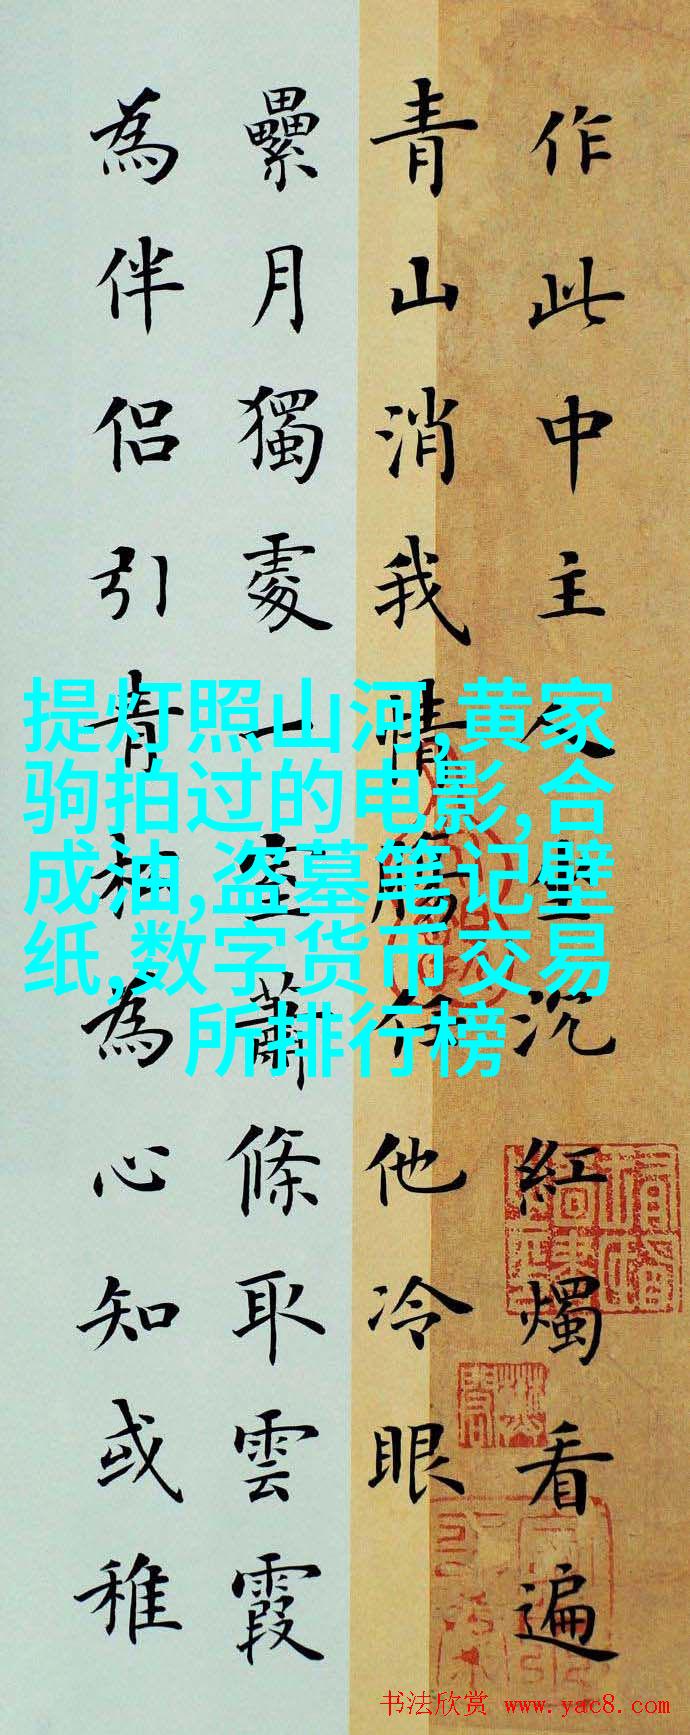 作此中主人坐沉紅燭看遍
青山消我情腸任他冷眼
纍月獨處一室蕭條取雲霞
為伴侶引青松為心知或稚
提灯照山河,黄家
驹拍过的电影,合
成油,盗墓笔记壁
纸,数字货币交易
所排行榜
书法欣赏 www.yac8.com